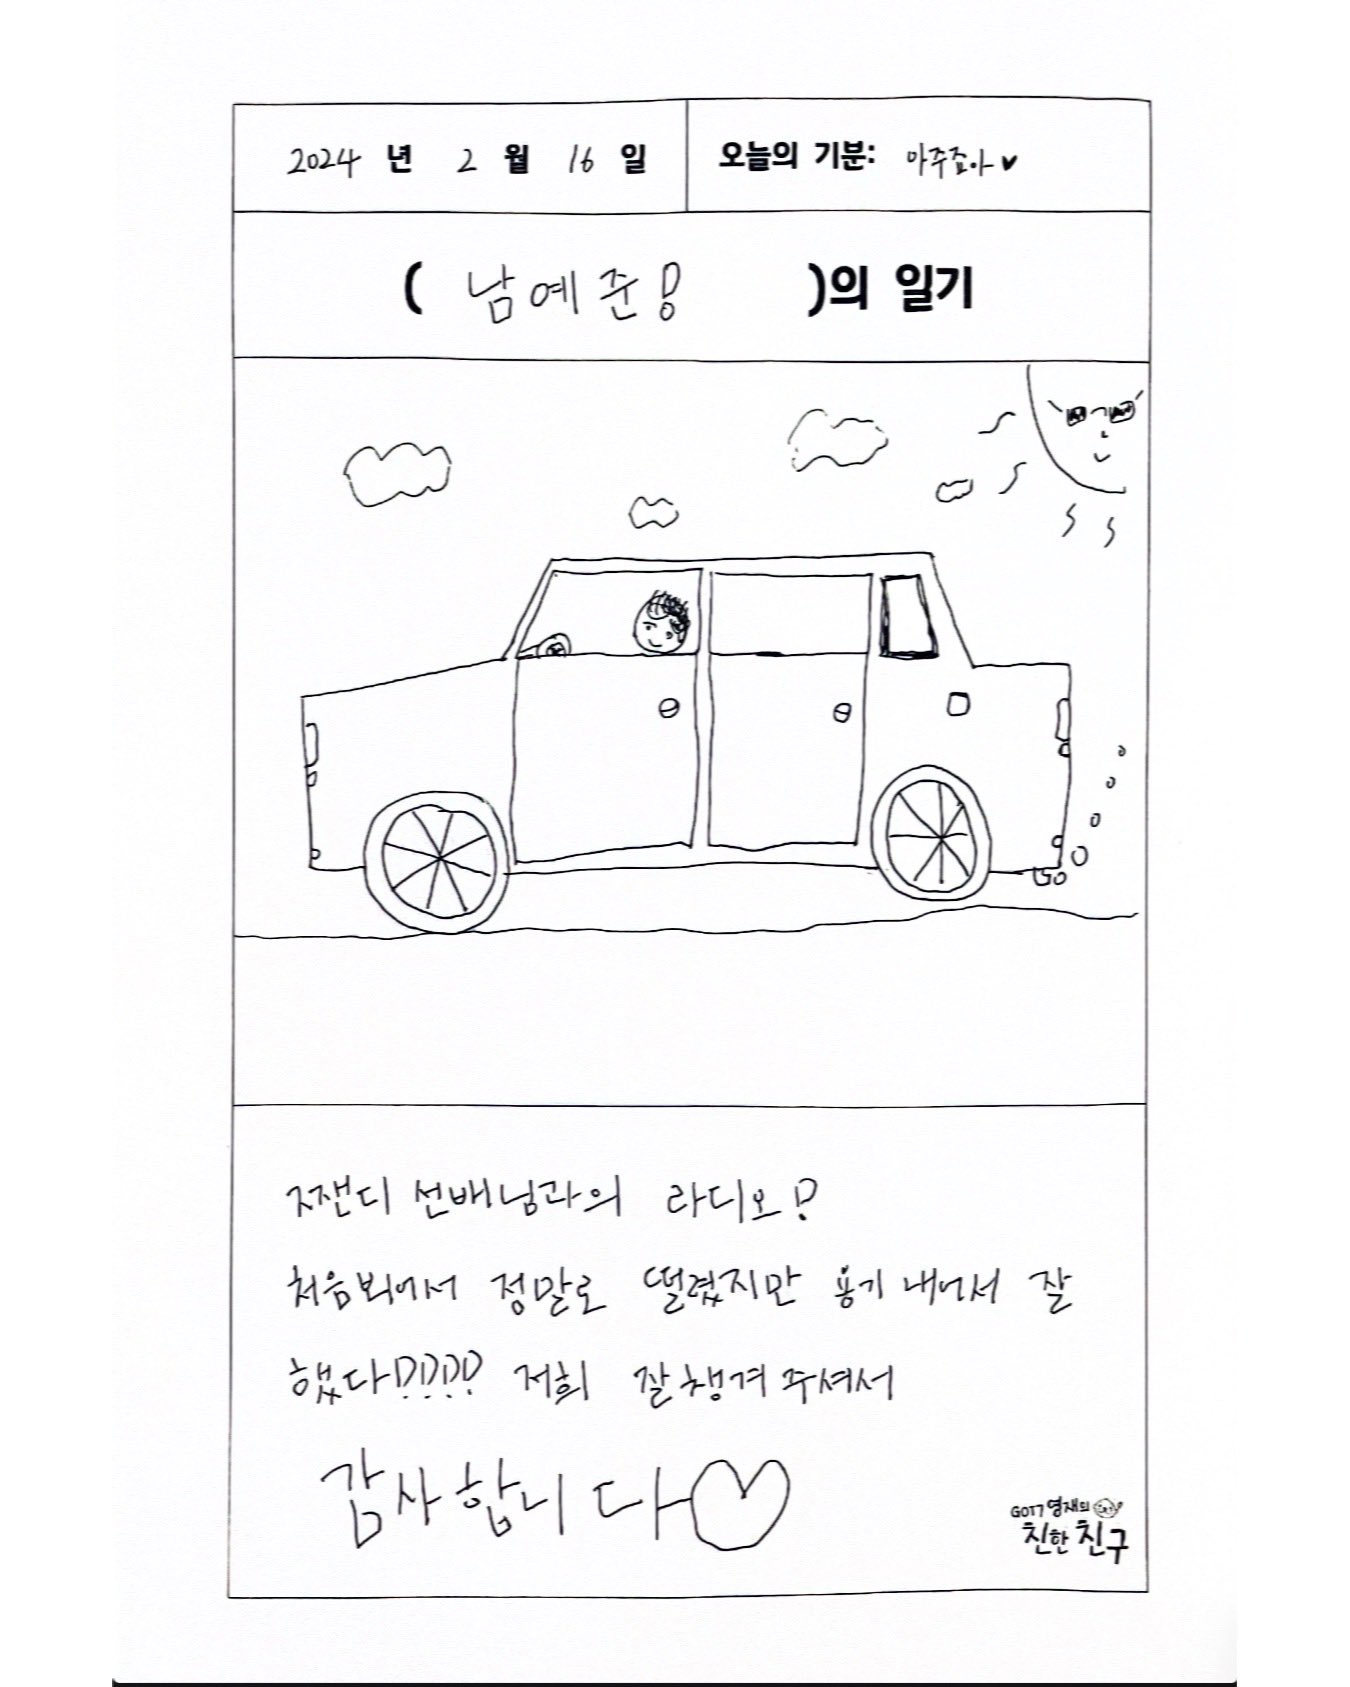 2024 년 2 월 16 일 오늘의 기분: 아주죠아♥
( 남예준! )의 일기
쨴디 선배님과의 라디오!
처음뵈어서 정말로 떨렸지만 용기 내어서 잘
했다!!!! 저희 잘챙겨주셔서
감사합니다♡
GOT7 영재의
친한친구